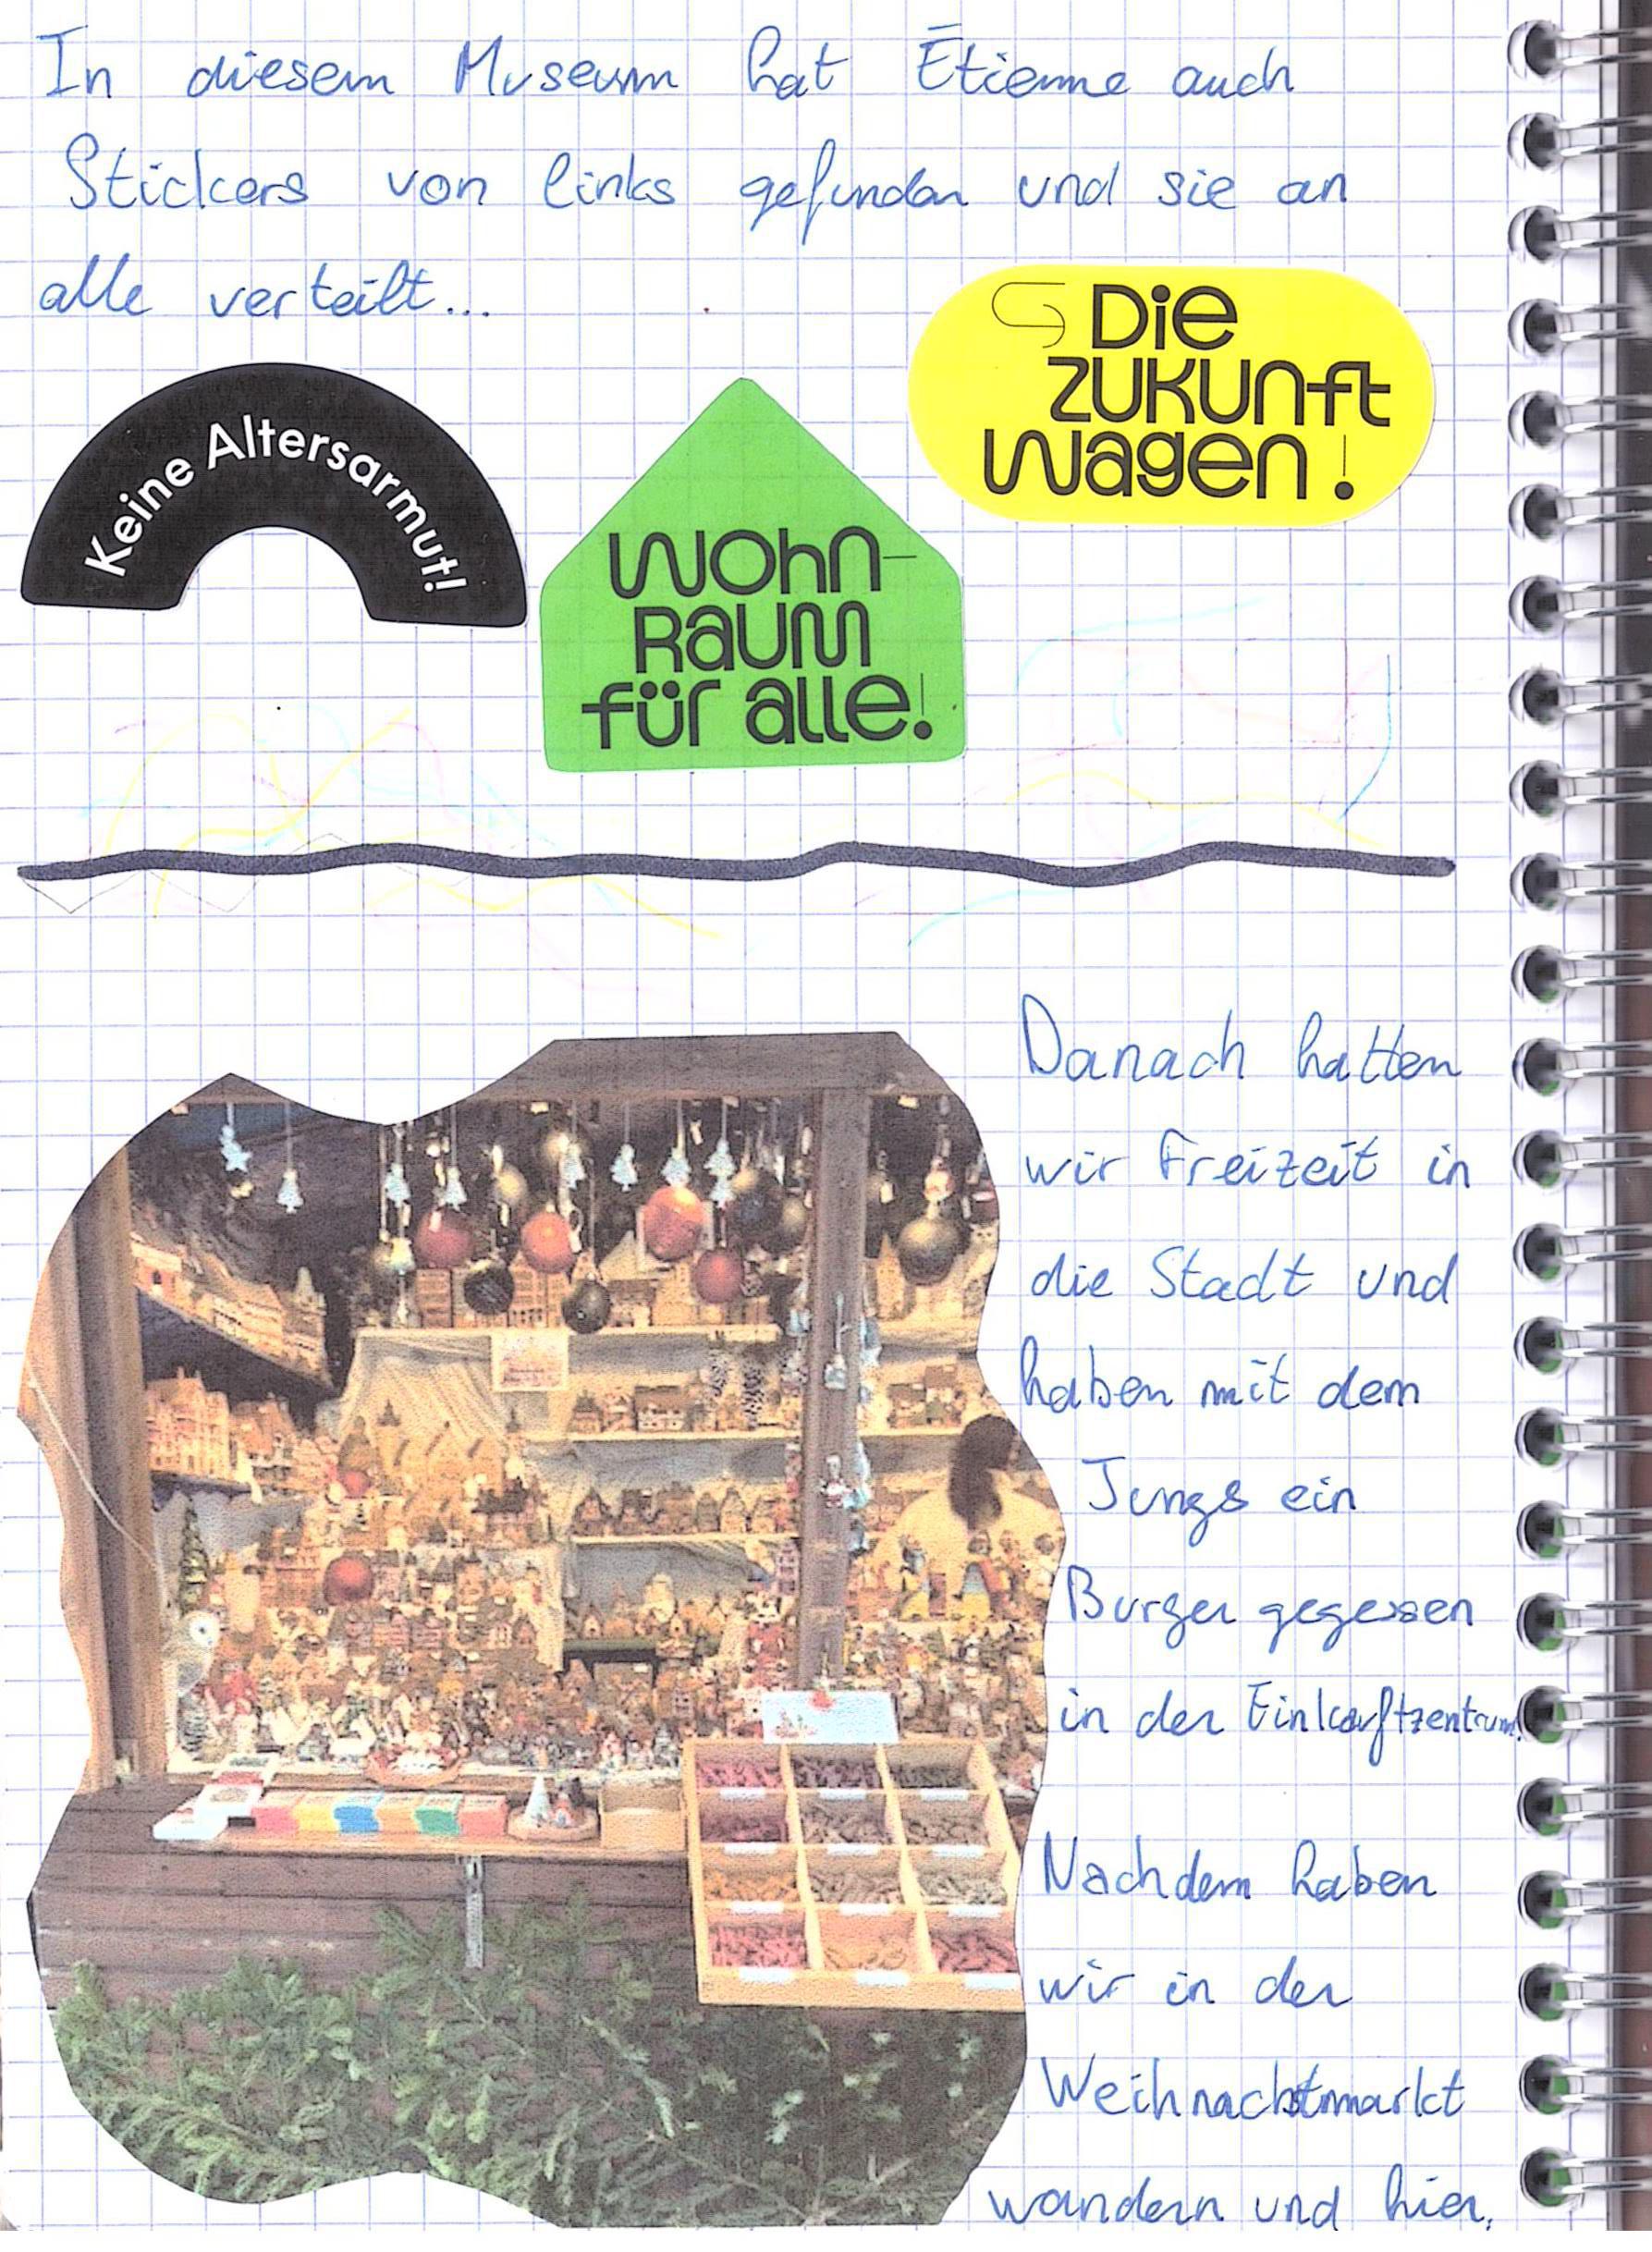 In diesem Museum hat Étienne auch
Stickers von links gefunden und sie an
alle verteilt...
Die
Zukunft
wagen!
Keine Altersarmut!
Wohn-
Raum
für alle!
Danach hatten
wir Freizeit in
die Stadt und
haben mit dem
Jungs ein
Burger gegessen
in der Einkauftzentrum!
Nachdem haben
wir in der
Weihnachstmarkt
wandern und hier,